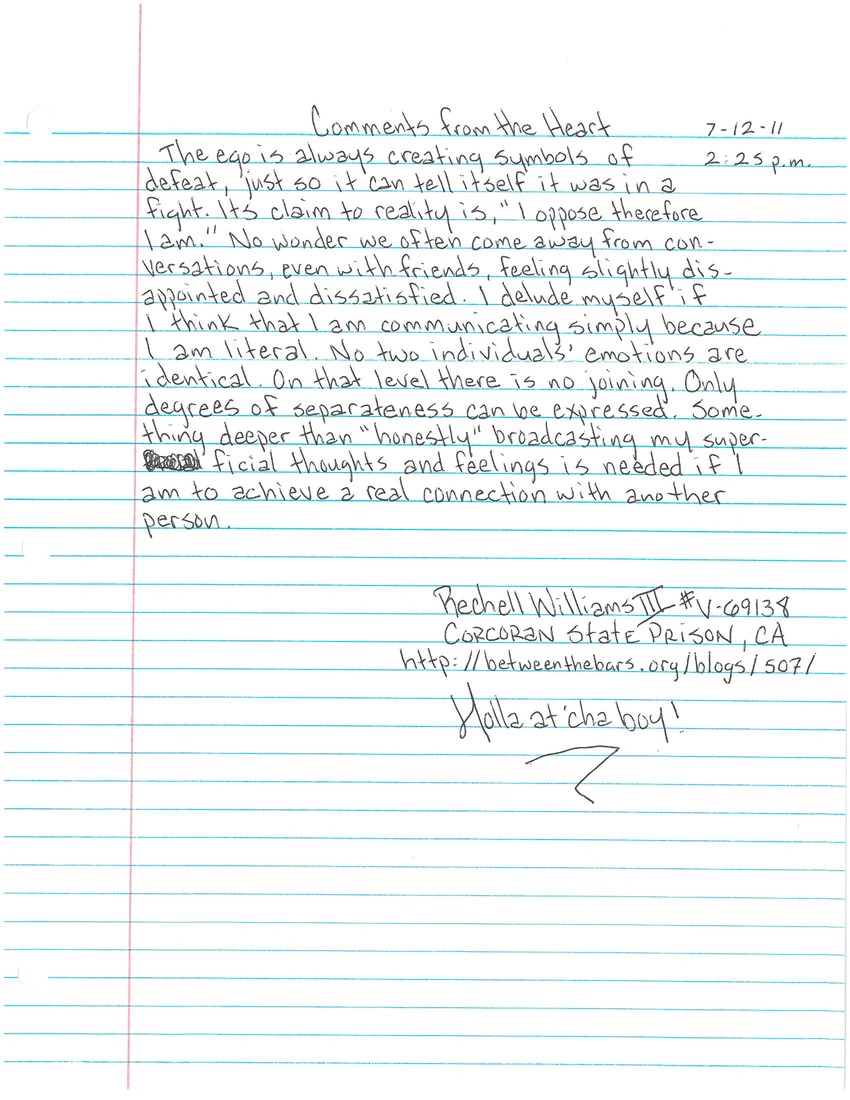 Comments from the Heart 7-12-11
The ego is always creating symbols of 2:25 p.m.
defeat, just so it can tell itself it was in a
fight. Its claim to reality is, "I oppose therefore
I am." No wonder we often come away from con-
versations, even with friends, feeling slightly dis-
appointed and dissatisfied. I delude myself if
I think that I am communicating simply because
I am literal. No two individuals' emotions are
identical. On that level there is no joining. Only
degrees of separateness can be expressed. Some-
thing deeper than "honestly" broadcasting my super-
ficial thoughts and feelings is needed if I
am to achieve a real connection with another
person.
Rechell Williams III #V-69138
Corcoran State Prison, CA
http://betweenthebars.org/blogs/507/
Holla at'cha boy!